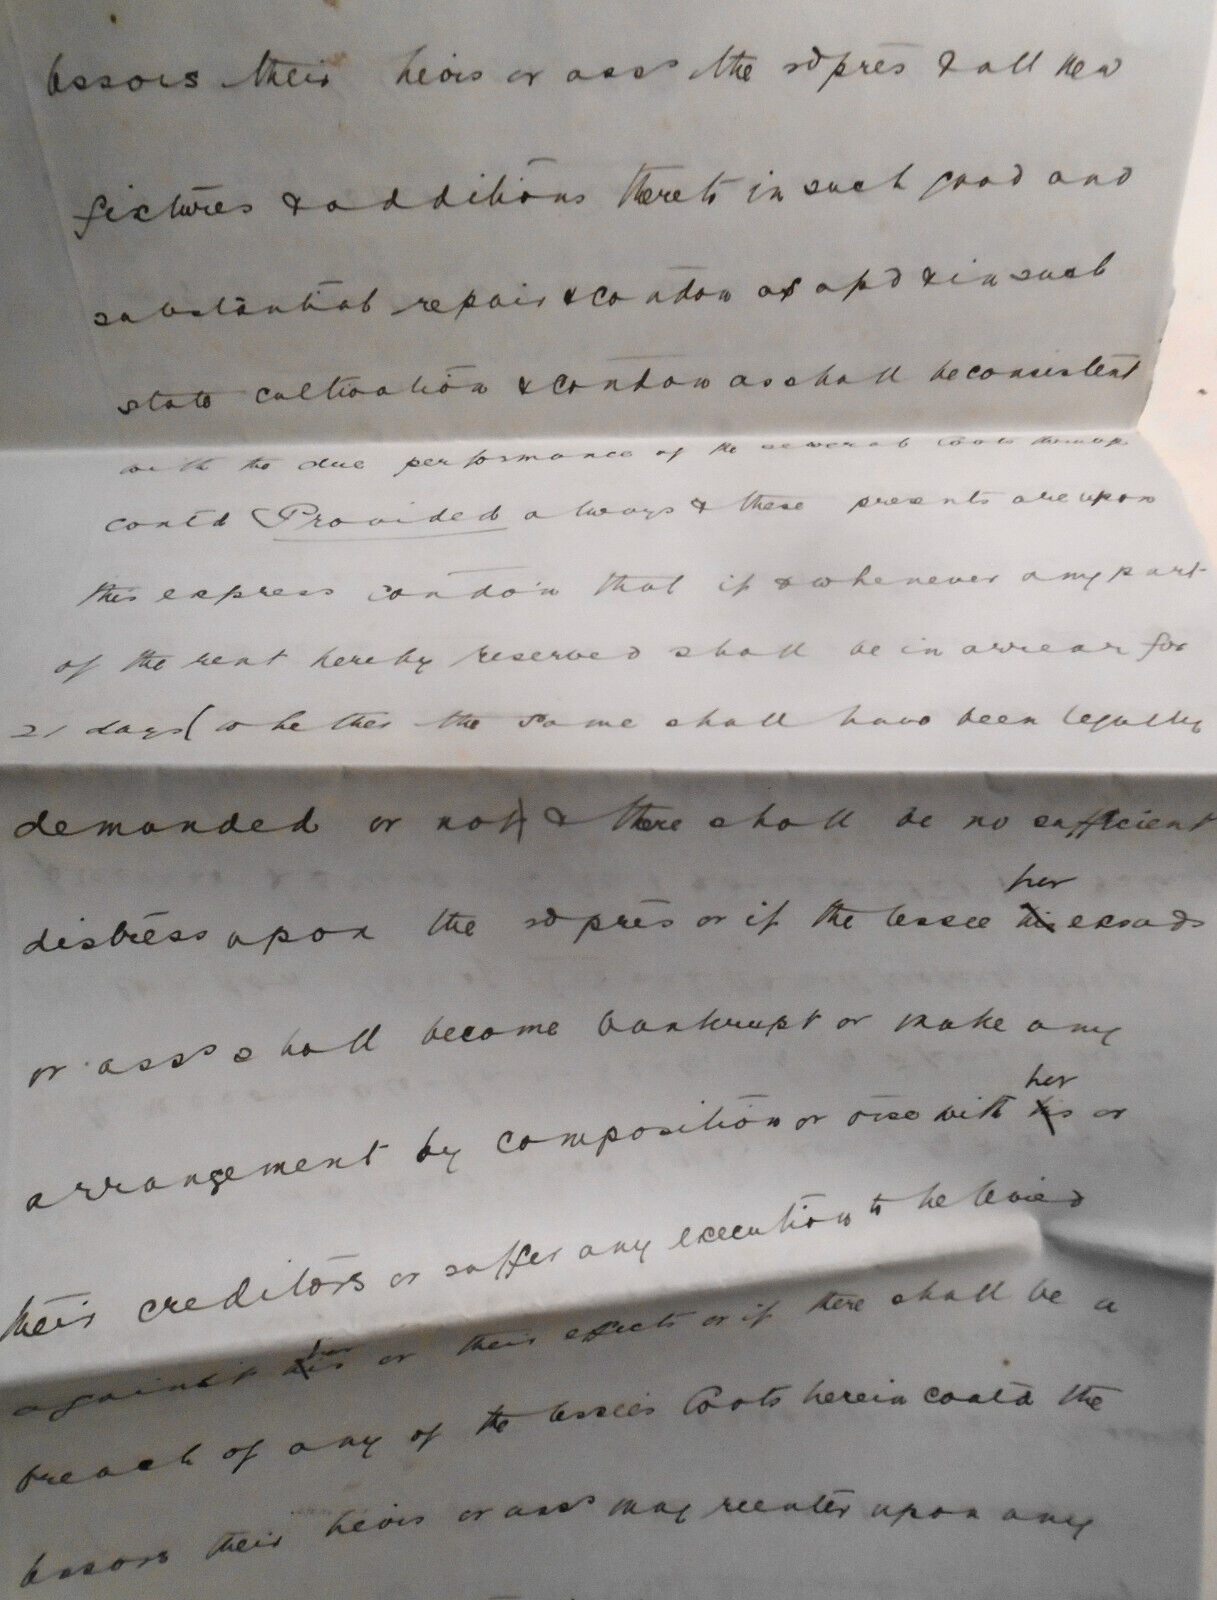 lessors their heirs or ass⁠s the sd pres & all new
fixtures & additions thereto in such good and
substantial repair & condon as afsd & in such
state cultivation & condon as shall be consistent
with the due performance of the several Covts
contd Provided always & these presents are upon
this express condon that if & whenever any part
of the rent hereby reserved shall be in arrear for
21 days (whether the same shall have been legally
demanded or not) & there shall be no sufficient
distress upon the sd pres or if the lessee her exors ads
or asss shall become bankrupt or make any
arrangement by composition or orse with her or
their creditors or suffer any execution to be levied
against her or their effects or if there shall be a
breach of any of the lessees Covts herein contd the
lessors their heirs or asss may reenter upon any